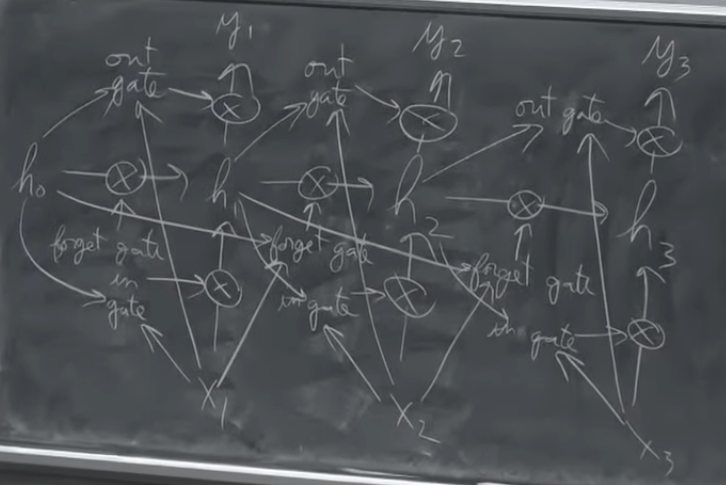 y1 y2 y3
out gate
out gate
out gate
h0 h1 h2 h3
forget gate
forget gate
forget gate
in gate
in gate
in gate
x1 x2 x3